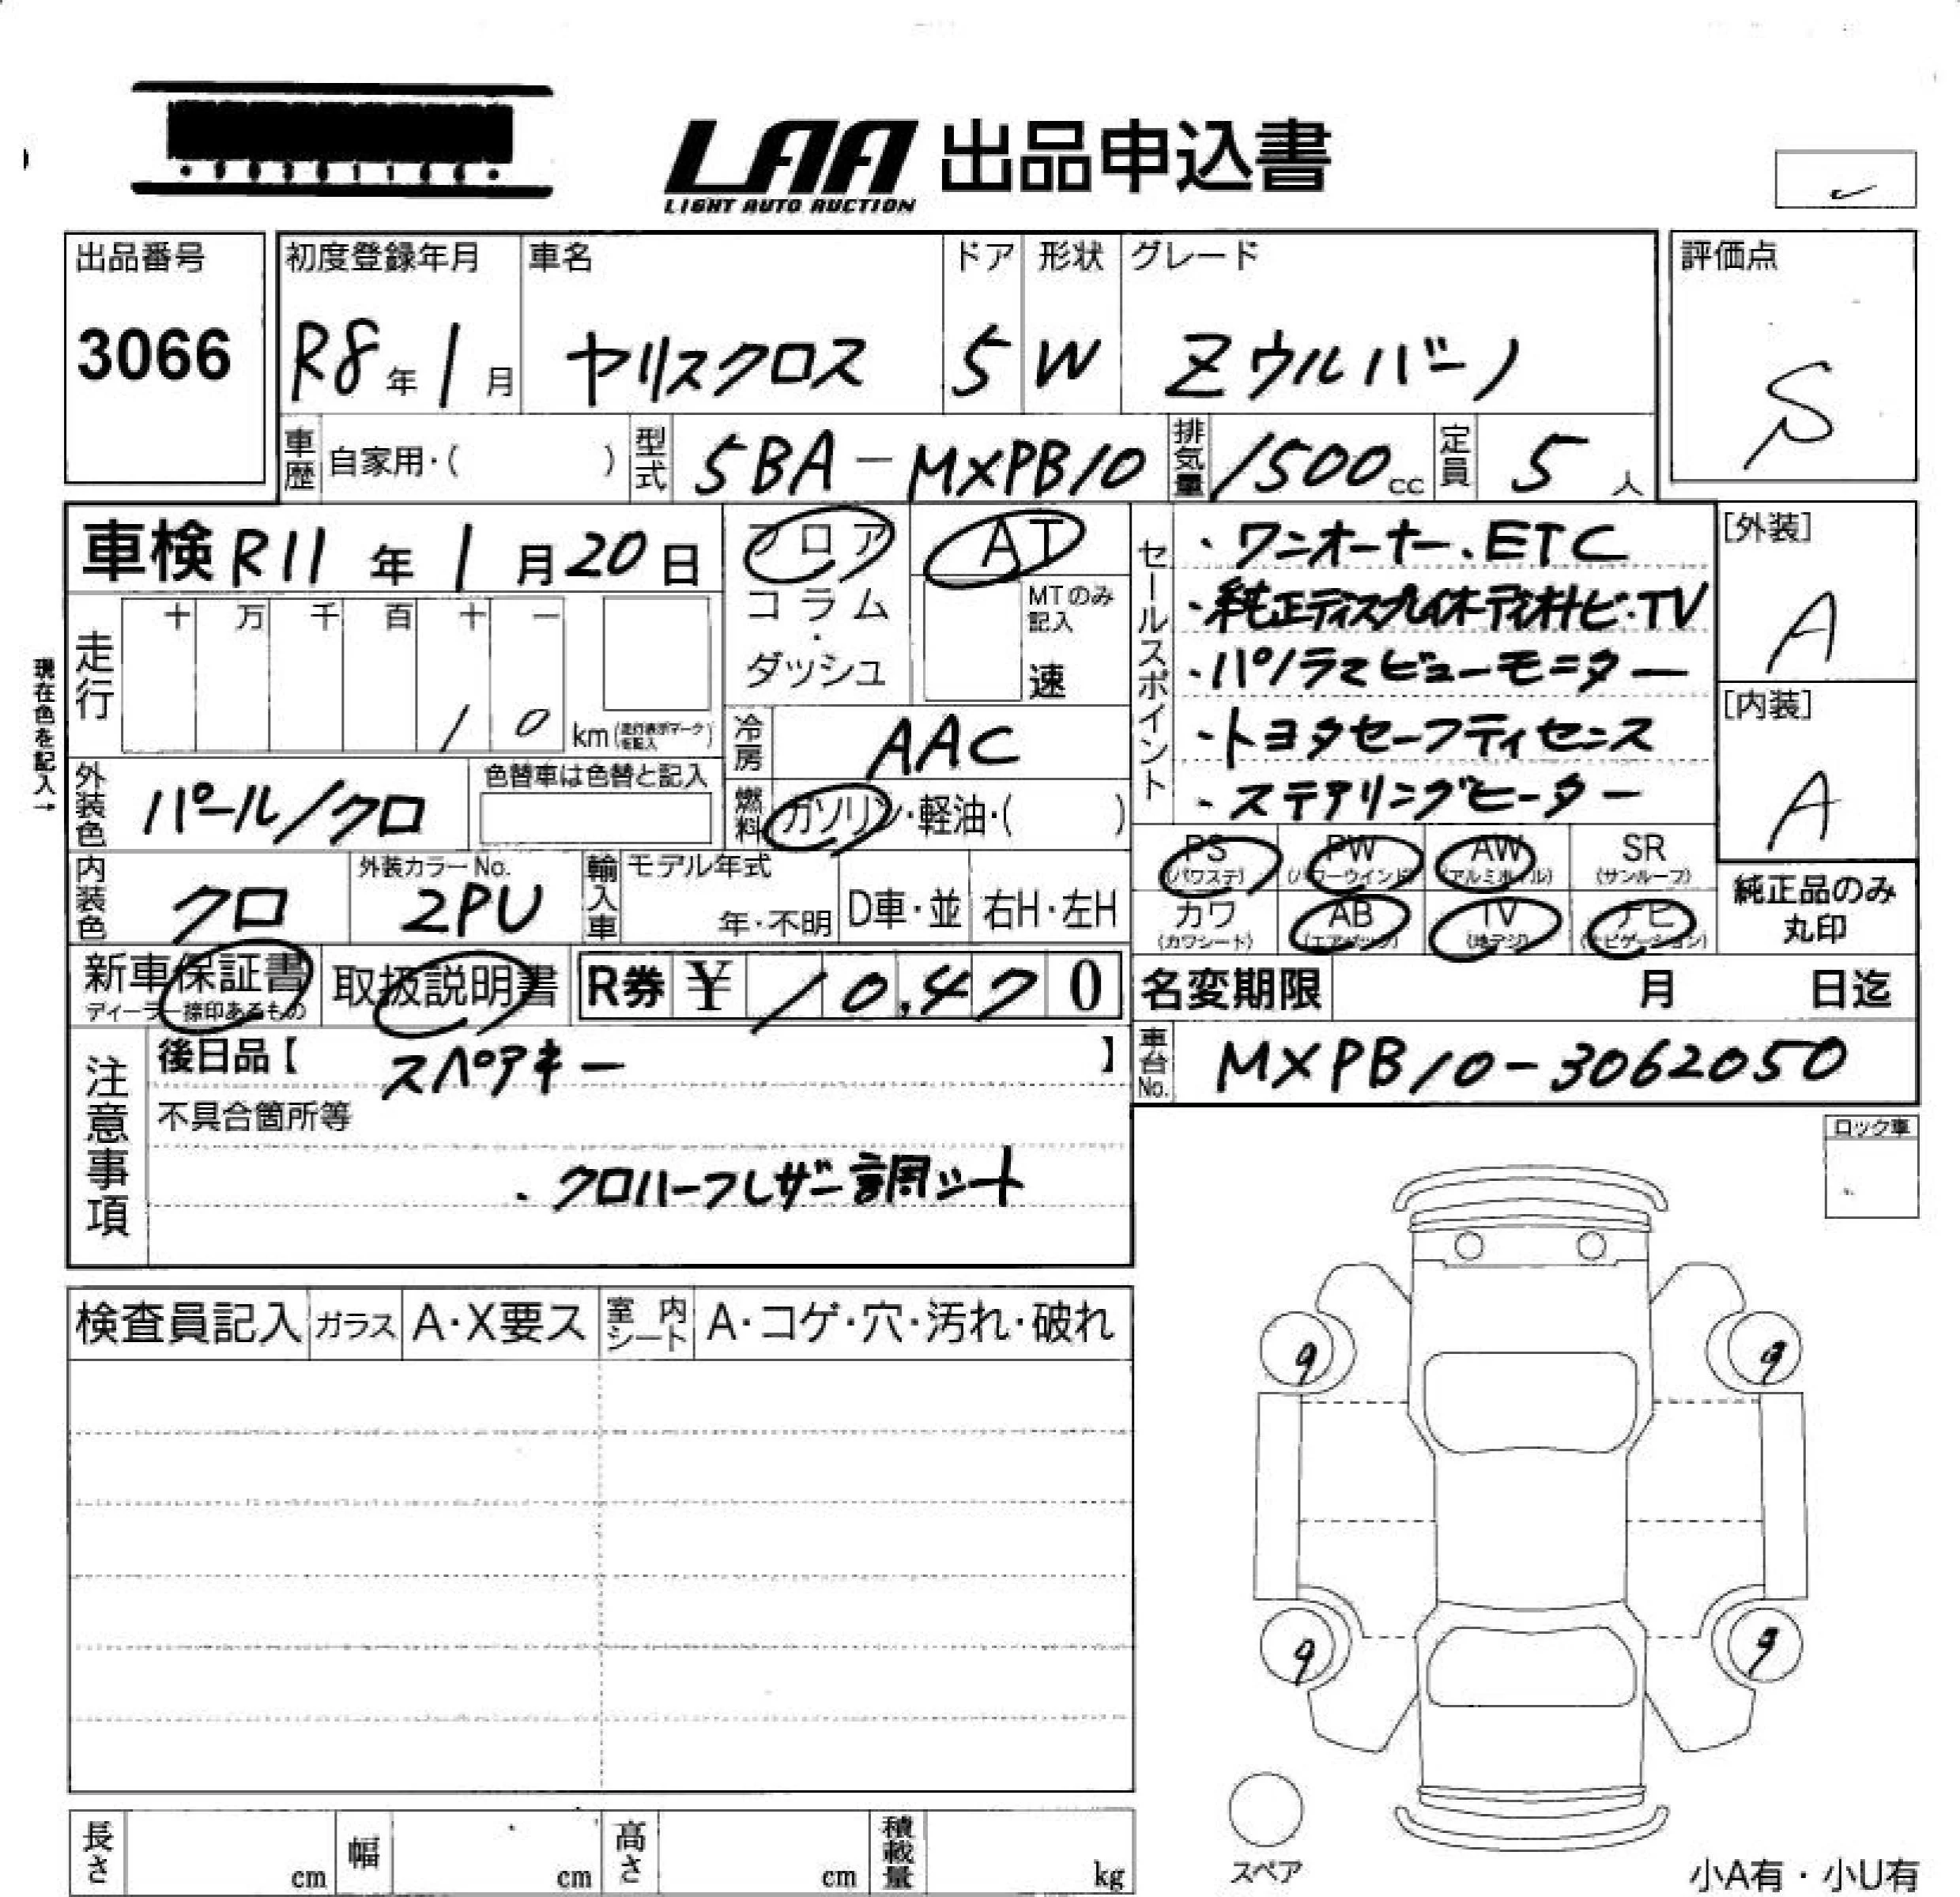 LAA 出品申込書
LIGHT AUTO AUCTION
出品番号
3066
初度登録年月
R8年1月
車名
ヤリスクロス
ドア
5
形状
W
グレード
Zウルバーノ
評価点
S
車歴
自家用・( )
型式
5BA-MXPB10
排気量
1500cc
定員
5人
車検 R11年1月20日
フロア
コラム
・
ダッシュ
AT
MTのみ
記入
速
セールスポイント
・ワンオーナー、ETC
・純正ディスプレイオーディオナビ・TV
・パノラマビューモニター
・トヨタセーフティセンス
・ステアリングヒーター
[外装]
A
[内装]
A
現在色を記入→
走行
十 万 千 百 十 一
1 0
km(走行表示マークを記入)
冷房
AAC
外装色
パール/クロ
色替車は色替と記入
燃料
ガソリン・軽油・( )
PS
(パワステ)
PW
(パワーウインド)
AW
(アルミホイル)
SR
(サンルーフ)
カワ
(カワシート)
AB
(エアバック)
TV
(地デジ)
ナビ
(ナビゲーション)
純正品のみ
丸印
内装色
クロ
外装カラーNo.
2PU
輸入車
モデル年式
年・不明
D車・並
右H・左H
新車保証書
ディーラー捺印あるもの
取扱説明書
R券 ¥ 10,470
名変期限 月 日迄
注意事項
後日品【 スペアキー 】
不具合箇所等
・クロハーフレザー調シート
車台No.
MXPB10-3062050
ロック車
検査員記入
ガラス
A・X要ス
室内シート
A・コゲ・穴・汚れ・破れ
9
9
9
9
スペア
長さ cm
幅 cm
高さ cm
積載量 kg
小A有・小U有